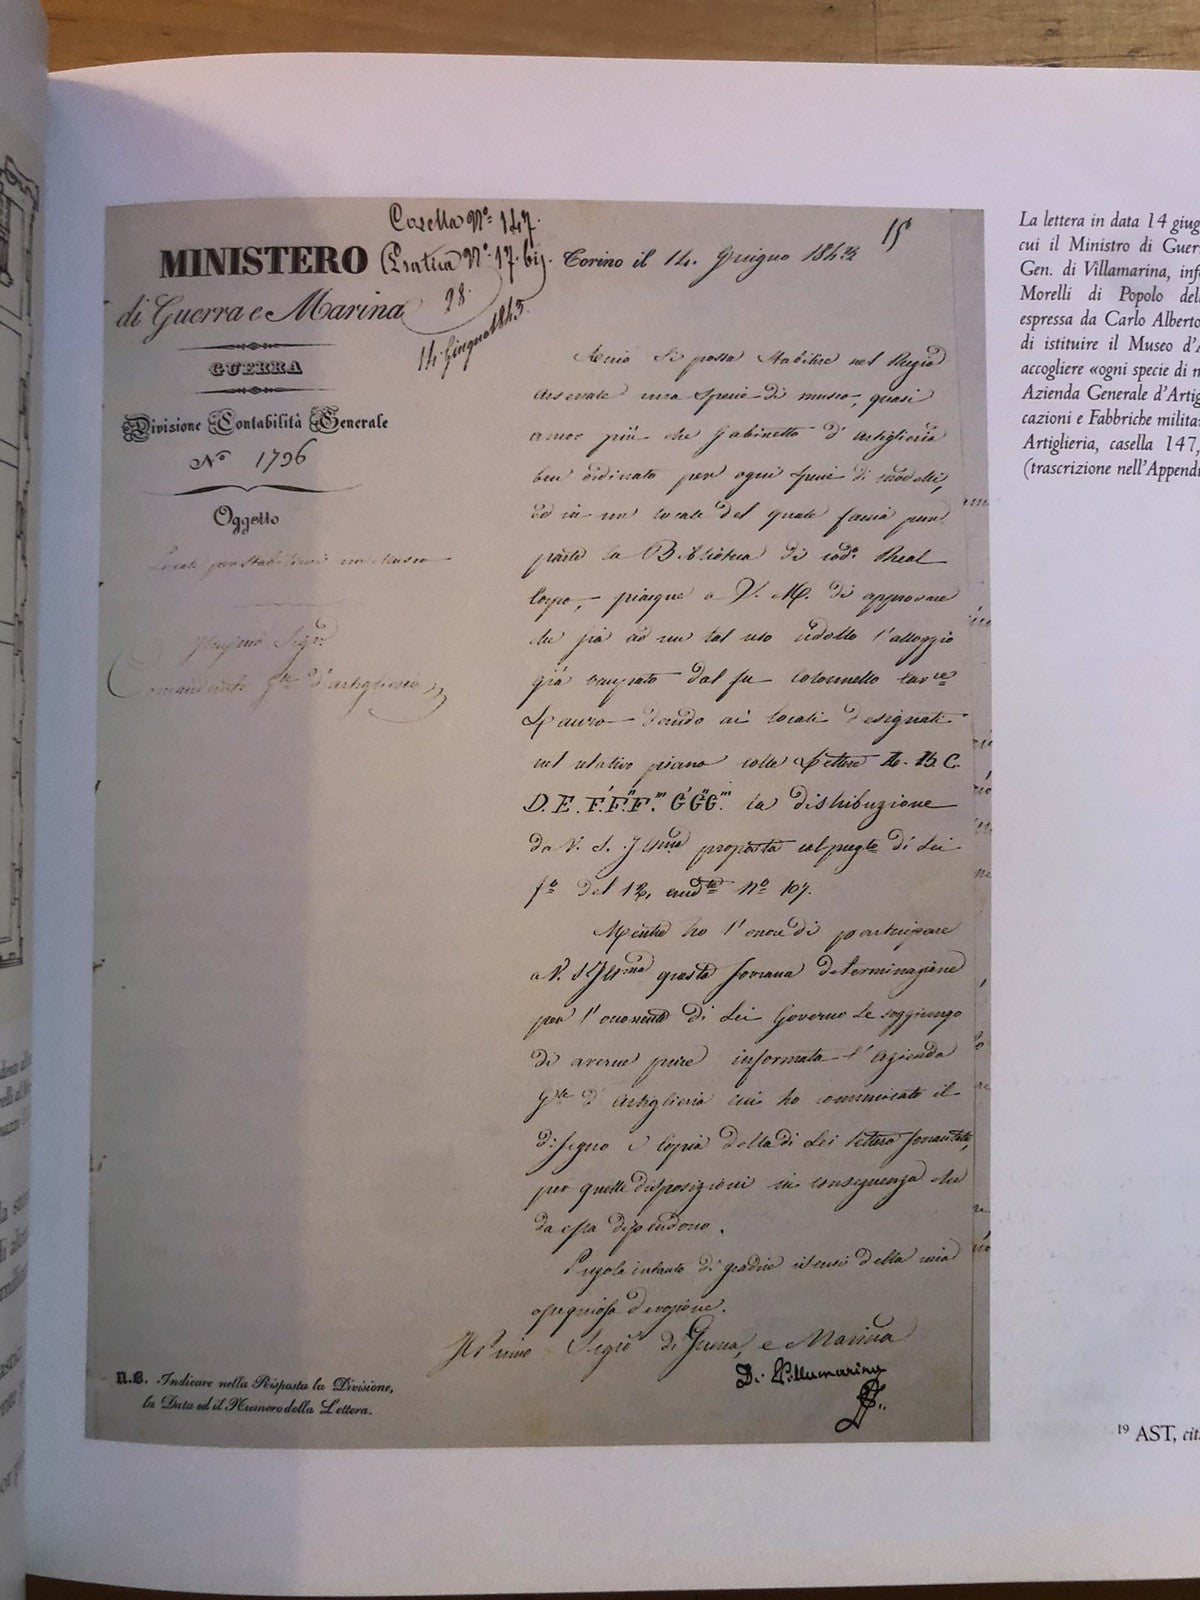 Casella Nº 147.
MINISTERO
Pratica Nº 17. bis.
Torino il 14. Giugno 1843
15
di Guerra e Marina
28
14. Giugno 1843.
GUERRA
Divisione Contabilità Generale
Nº 1796
Oggetto
Locale per stabilirvi un Museo
Sigr
Comandante Gle d'artiglieria
Acciò si possa stabilire nel Regio
Arsenale una specie di museo, quasi
anco più che Gabinetto d'Artiglieria
ben ordinato per ogni specie di modelli,
ed in un locale del quale faccia pur
parte la Biblioteca di codº Real
Corpo, piacque a S. M. di approvare
che sia ad un tal uso ridotto l'alloggio
già occupato dal fu Colonnello Cavre
dando ai locali designati
nel relativo piano colle Lettere A. B. C.
D. E. F' F'' F''' G' G'' G''' la distribuzione
da V. S. Illma proposta col pregto di Lei
fº del 12, andte Nº 107.
Mentre ho l'onore di partecipare
a V. S. Illma questa sovrana determinazione
per l'occorrente di Lei Governo Le soggiungo
di averne pure informata l'Azienda
Gle d'Artiglieria cui ho comunicato il
disegno e copia della di Lei lettera sovracitata,
per quelle disposizioni in conseguenza che
da essa dipendono.
Pregola intanto di gradire i sensi della mia
ossequiosa devozione.
Il Primo Segrio di Guerra, e Marina
Di Villamarina
N.B. Indicare nella Risposta la Divisione,
la Data ed il Numero della Lettera.
La lettera in data 14 giug
cui il Ministro di Guer
Gen. di Villamarina, inf
Morelli di Popolo del
espressa da Carlo Alberto
di istituire il Museo d'A
accogliere «ogni specie di m
Azienda Generale d'Artig
cazioni e Fabbriche milita
Artiglieria, casella 147,
(trascrizione nell'Append
19 AST, cit.